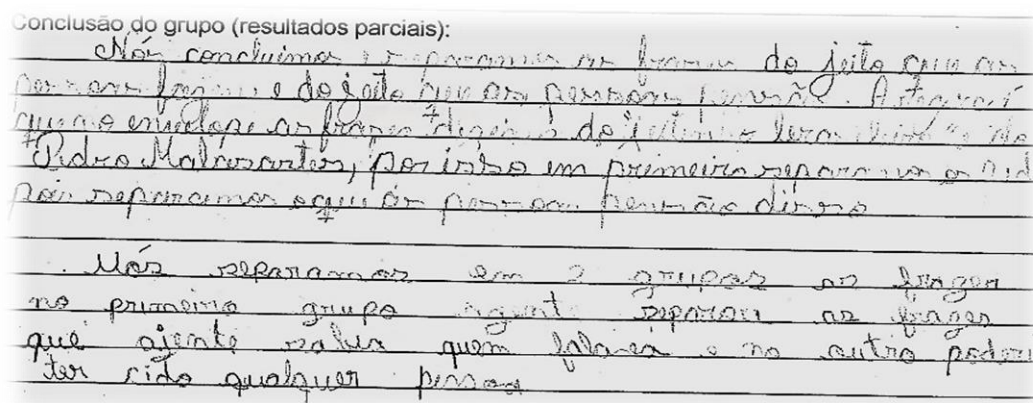 Conclusão do grupo (resultados parciais):
Nós concluimos separamos as frases do jeito que as
pessoas fazem e do jeito que as pessoas pensão. Artur
que no envelope as frases dizem do "jeitinho brasileiro" do
Pedro Malasartes, por isso em primeiro separamos o
pois separamos oque as pessoas pensão disso
Nós separamos em 2 grupos as frazes
no primeiro grupo agente separou as frazes
que ajente sabia quem falava e no outro poderi
ter cido qualquer pessoa